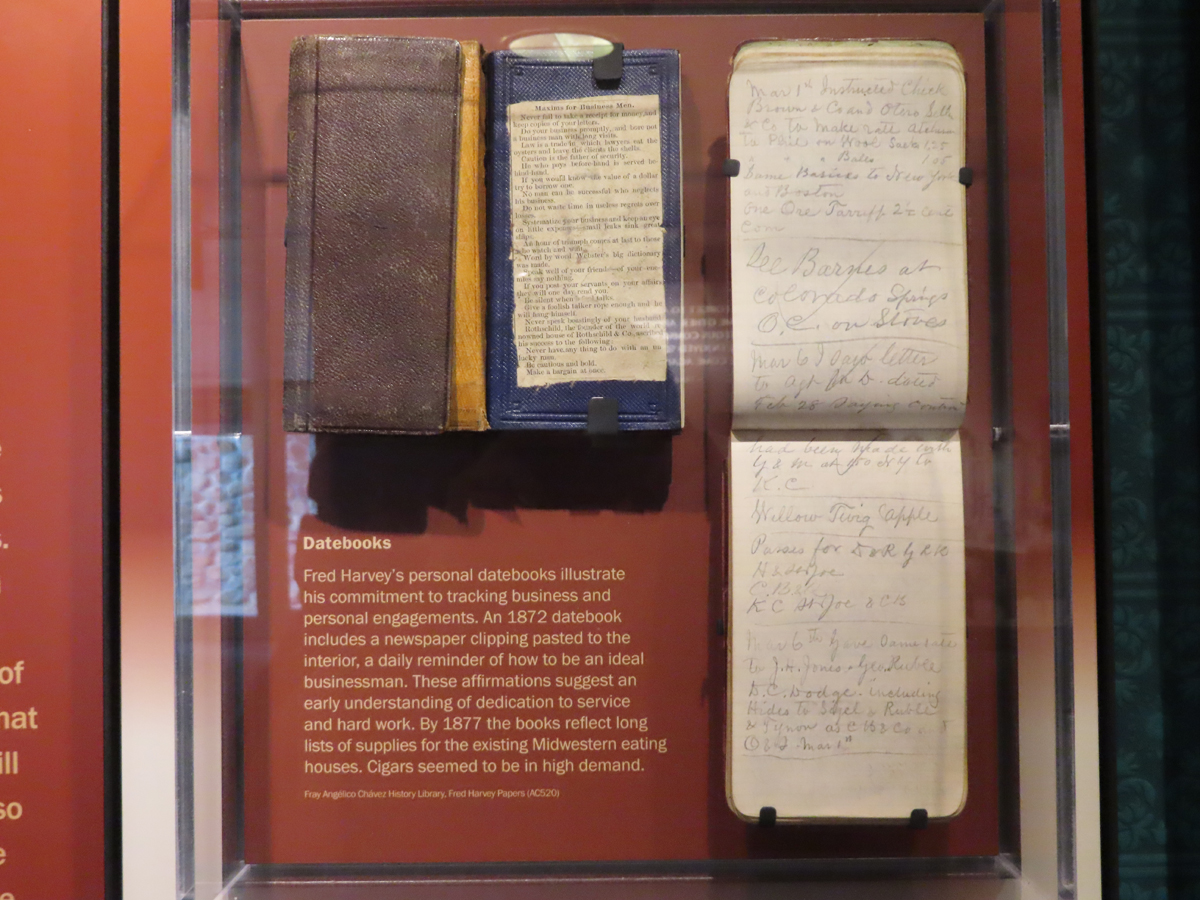 Maxims for Business Men.
Never fail to take a receipt for money, and
keep copies of your letters.
Do your business promptly, and bore not
a business man with long visits.
Law is a trade in which lawyers eat the
oysters and leave the clients the shells.
Caution is the father of security.
He who pays before-hand is served be-
hind-hand.
If you would know the value of a dollar
try to borrow one.
No man can be successful who neglects
his business.
Do not waste time in useless regrets over
losses.
Systematize your business and keep an eye
on little expenses small leaks sink great
ships.
An hour of triumph comes at last to those
who watch and wait.
Word by word Webster's big dictionary
was made.
Speak well of your friends—of your ene-
mies say nothing.
If you post your servants on your affairs
they will one day rend you.
Be silent when a fool talks.
Give a foolish talker rope enough and he
will hang himself.
Never speak boastingly of your husband
Rothschild, the founder of the world re-
nowned house of Rothschild & Co., ascribed
his success to the following:
Never have any thing to do with an un-
lucky man.
Be cautious and bold.
Make a bargain at once.
Mar 1st Instructed Check
Brown & Co and Otero Sell
& Co to make rate
to Phil on Wool Sacks 1.25
" " " Bales 1.05
Same Basises to New York
and Boston
One Ore Tarriff 2½ cent
Com
See Barnes at
Colorado Springs
O.C. on Stoves
Mar 6 I say letter
to agt dated
Feb 28 Saying contra
had been made with
to
K.C
Willow Twig Apple
Passes for D & R G R R
H & St Joe
C.B
KC St Joe & CB
Mar 6th Gave Same rate
to J.H. Jones, Geo. Ruble
D.C. Dodge. including
Hides to & Ruble
& Tynon as C B & Co
Mar 1st
Datebooks
Fred Harvey's personal datebooks illustrate
his commitment to tracking business and
personal engagements. An 1872 datebook
includes a newspaper clipping pasted to the
interior, a daily reminder of how to be an ideal
businessman. These affirmations suggest an
early understanding of dedication to service
and hard work. By 1877 the books reflect long
lists of supplies for the existing Midwestern eating
houses. Cigars seemed to be in high demand.
Fray Angélico Chávez History Library, Fred Harvey Papers (AC520)
of